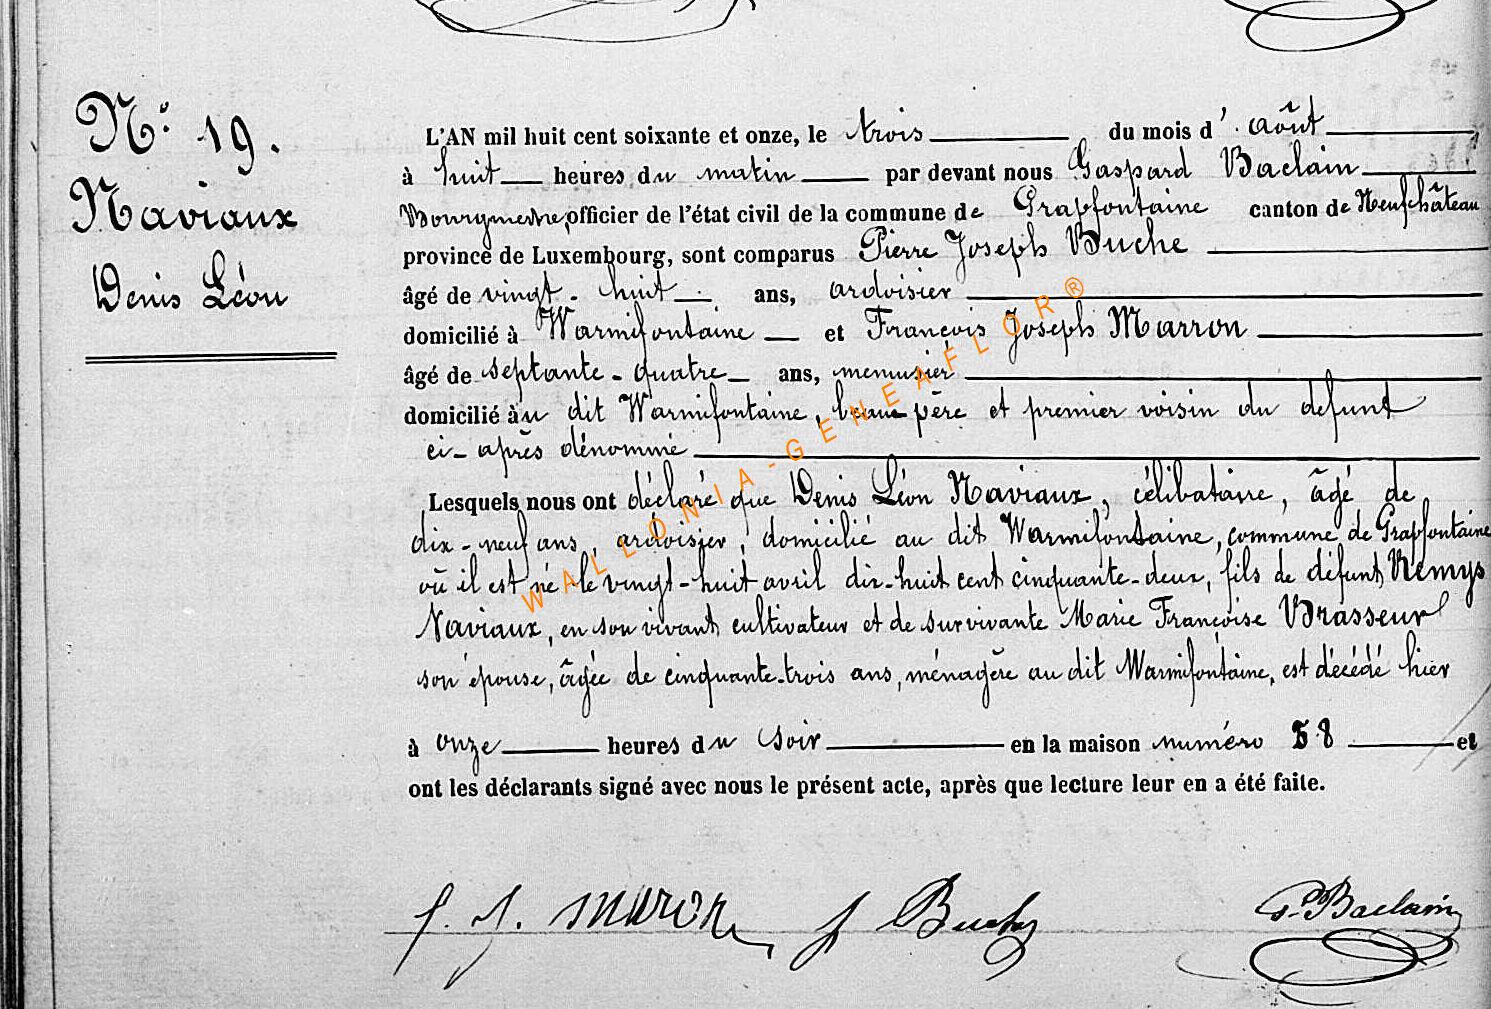 N° 19.
Naviaux
Denis Léon
L'AN mil huit cent soixante et onze, le trois du mois d'août
à huit heures du matin par devant nous Gaspard Baclain
Bourgmestre, officier de l'état civil de la commune de Grapfontaine canton de Neufchâteau
province de Luxembourg, sont comparus Pierre Joseph Buche
âgé de vingt-huit ans, ardoisier
domicilié à Warmifontaine et François Joseph Marron
âgé de septante-quatre ans, menuisier
domicilié au dit Warmifontaine, beau père et premier voisin du defunt
ci-après dénommé
Lesquels nous ont déclaré que Denis Léon Naviaux, célibataire, âgé de
dix-neuf ans, ardoisier, domicilié au dit Warmifontaine, commune de Grapfontaine
où il est né le vingt-huit avril dix-huit cent cinquante-deux, fils de défunt Remys
Naviaux, en son vivant cultivateur et de survivante Marie Françoise Brasseur
son épouse, âgée de cinquante-trois ans, ménagère au dit Warmifontaine, est décédé hier
à onze heures du soir en la maison numéro 58 et
ont les déclarants signé avec nous le présent acte, après que lecture leur en a été faite.
f. J. maron J Buche G. Baclain
WALLONIA-GENEAFLOR®